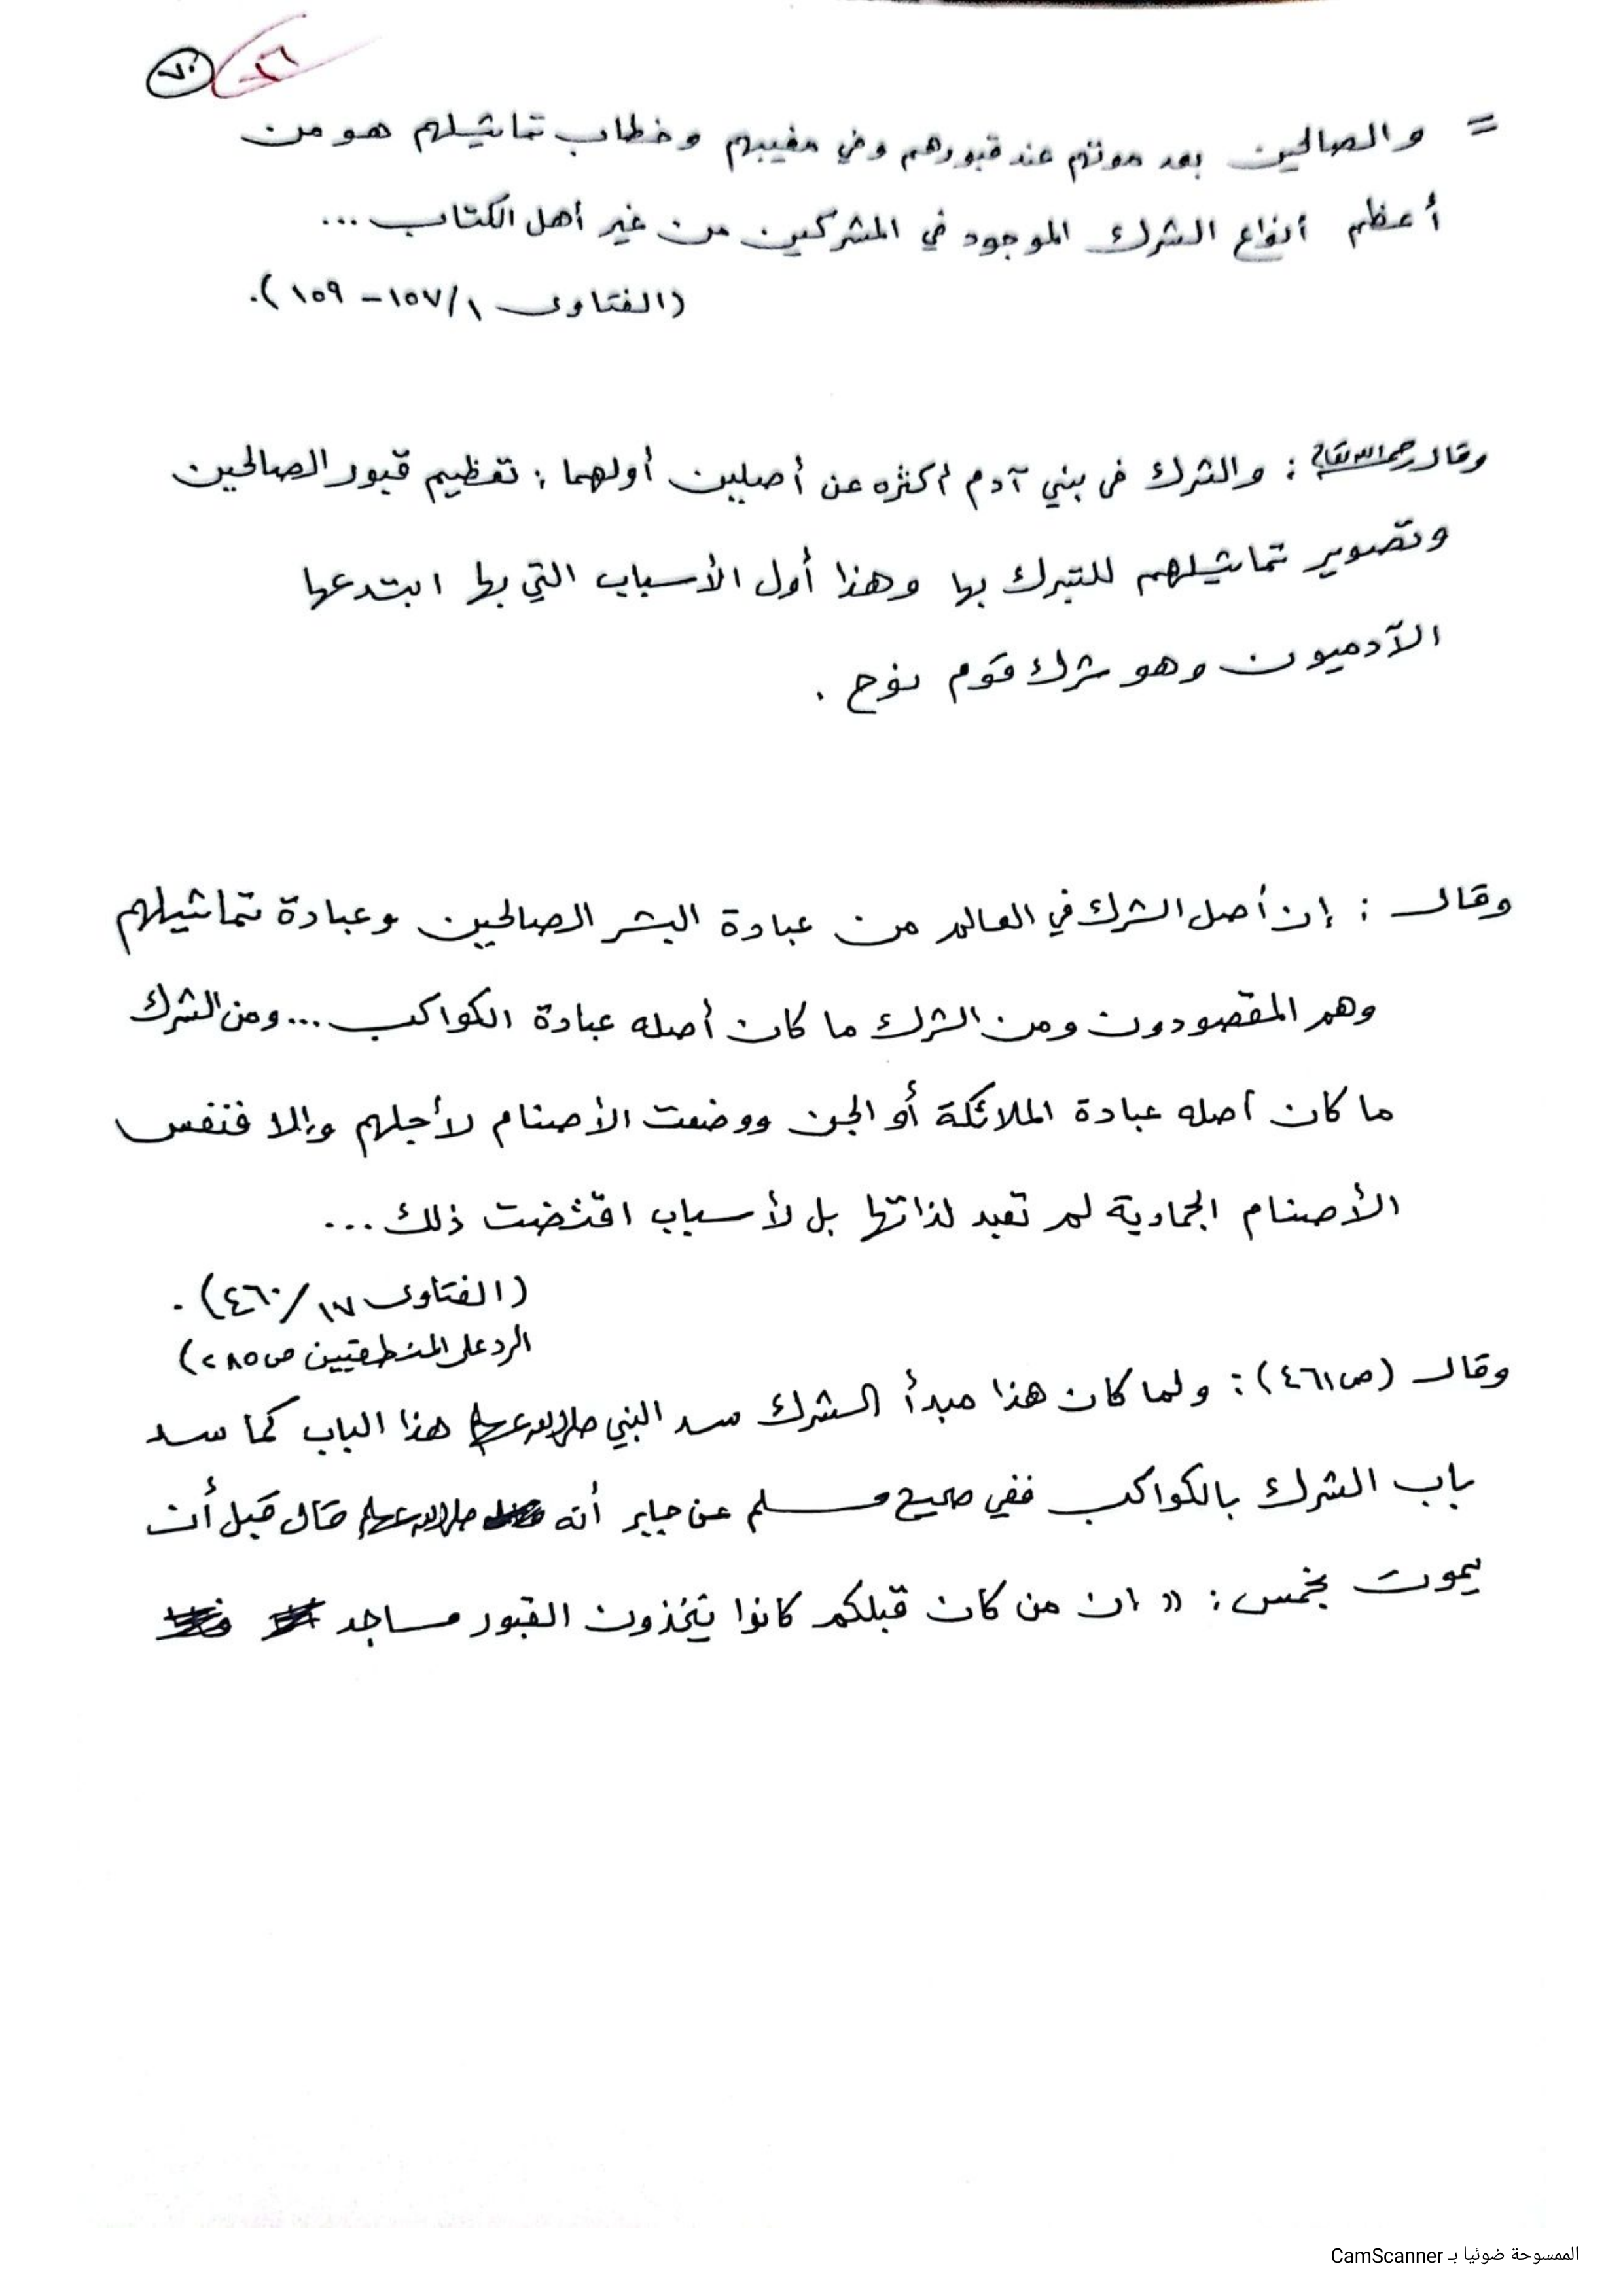 ٧٠
٢٦
= والصالحين بعد موتهم عند قبورهم وفي مغيبهم وخطاب تماثيلهم هو من
أعظم أنواع الشرك الموجود في المشركين من غير أهل الكتاب ...
(الفتاوى ١/١٥٧ - ١٥٩).
وقال رحمه الله تعالى : والشرك في بني آدم أكثره عن أصلين أولهما : تعظيم قبور الصالحين
وتصوير تماثيلهم للتبرك بها وهذا أول الأسباب التي بها ابتدعها
الآدميون وهو شرك قوم نوح .
وقال : إن أصل الشرك في العالم من عبادة البشر الصالحين وعبادة تماثيلهم
وهم المقصودون ومن الشرك ما كان أصله عبادة الكواكب ... ومن الشرك
ما كان أصله عبادة الملائكة أو الجن ووضعت الأصنام لأجلهم وإلا فنفس
الأصنام الجمادية لم تعبد لذاتها بل لأسباب اقتضت ذلك ...
(الفتاوى ١٧/٤٦٠) .
الرد على المنطقيين ص٢٨٥)
وقال (ص٤٦١) : ولما كان هذا مبدأ الشرك سد النبي صلى الله عليه وسلم هذا الباب كما سد
باب الشرك بالكواكب ففي صحيح مسلم عن جابر أنه صلى الله عليه وسلم قال قبل أن
يموت بخمس : « ان من كان قبلكم كانوا يتخذون القبور مساجد
الممسوحة ضوئيا بـ CamScanner